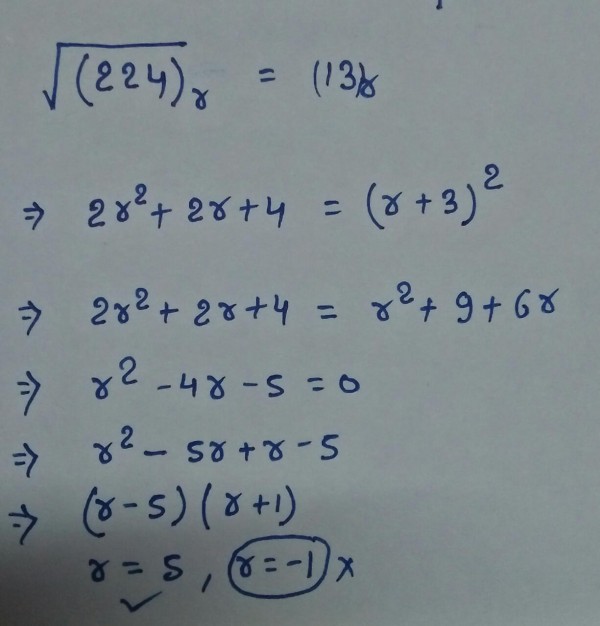 √(224)r = (13)r
⇒ 2r² + 2r + 4 = (r + 3)²
⇒ 2r² + 2r + 4 = r² + 9 + 6r
⇒ r² - 4r - 5 = 0
⇒ r² - 5r + r - 5
⇒ (r - 5) (r + 1)
r = 5, r = -1 ×
✓